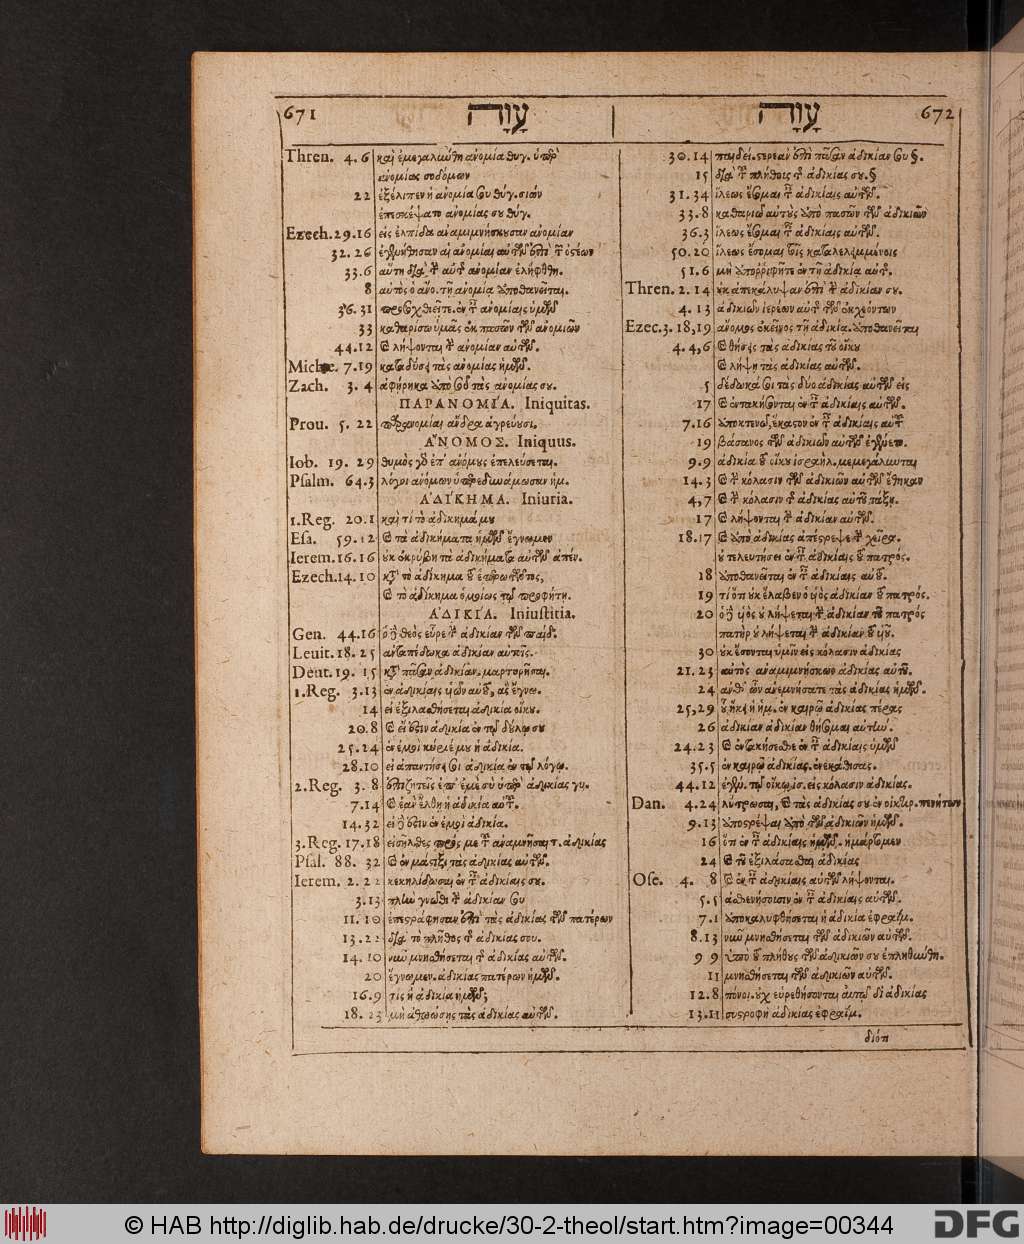 671 עָוָה עָוָה 672
Thren. 4. 6 καὶ ἐμεγαλύνθη ἀνομία θυγ. ὑπὲρ
ἀνομίας σοδόμων
22 ἐξέλιπεν ἡ ἀνομία σου θύγ. σιών
ἐπεσκέψατο ἀνομίας σου θύγ.
Ezech. 29. 16 εἰς ἐλπίδα ἀναμιμνήσκουσαν ἀνομίαν
32. 26 αἱ ἀνομίαι αὐτῶν ἐπὶ τ ὀστέων
33. 6 αὕτη διὰ τὴν αὐτῆς ἀνομίαν ἐλήφθη.
8 αὐτὸς ὁ ἄνο. τῇ ἀνομίᾳ ἀποθανεῖται.
36. 31 προσοχθιεῖτε. ἐν ταῖς ἀνομίαις ὑμῶν
33 καθαρίσω ὑμᾶς ἐκ πασῶν τῶν ἀνομιῶν
44. 12 καὶ λήψονται τὴν ἀνομίαν αὐτῶν.
Miche. 7. 19 καταδύσει τὰς ἀνομίας ἡμῶν.
Zach. 3. 4 ἀφῄρηκα ἀπὸ σοῦ τὰς ἀνομίας σου.
ΠΑΡΑΝΟΜΙ´Α. Iniquitas.
Prou. 5. 22 παρανομίαι ἄνδρα ἀγρεύουσι.
Α῎ΝΟΜΟΣ. Iniquus.
Iob. 19. 29 θυμὸς γὰρ ἐπ' ἀνόμους ἐπελεύσεται.
Psalm. 64. 3 λόγοι ἀνόμων ὑπερεδυνάμωσαν ἡμ.
Α᾿ΔΙ´ΚΗΜΑ. Iniuria.
1. Reg. 20. 1 καὶ τί τὸ ἀδίκημά μου
Esa. 59. 12 καὶ τὰ ἀδικήματα ἡμῶν ἔγνωμεν
Ierem. 16. 16 οὐκ ἐκρύβη τὰ ἀδικήματα αὐτῶν ἀπέν.
Ezech. 14. 10 κατὰ τὸ ἀδίκημα τοῦ ἐπερωτῶντος,
καὶ τὸ ἀδίκημα ὁμοίως τῷ προφήτῃ.
Α᾿ΔΙΚΙ´Α. Iniustitia.
Gen. 44. 16 ὁ δὲ θεὸς εὗρε τὴν ἀδικίαν τῶν παίδ.
Leuit. 18. 25 ἀνταπέδωκα ἀδικίαν αὐτοῖς.
Deut. 19. 15 κατὰ πᾶσαν ἀδικίαν. μαρτυρῆσαι.
1. Reg. 3. 13 ἐν ἀδικίαις υἱῶν αὐτοῦ, ἃς ἔγνω.
14 εἰ ἐξιλασθήσεται ἀδικία οἴκου.
20. 8 καὶ εἴ ἐστιν ἀδικία ἐν τῷ δούλῳ σου
25. 24 ἐν ἐμοὶ κύριέ μου ἡ ἀδικία.
28. 10 εἰ ἀπαντήσει σοι ἀδικία ἐν τῷ λόγῳ.
2. Reg. 3. 8 ἐπιζητεῖς ἐπ' ἐμὲ σὺ ὑπὲρ ἀδικίας γυ.
7. 14 καὶ ἐὰν ἔλθῃ ἡ ἀδικία αὐτ.
14. 32 εἰ δὲ ἐστιν ἐν ἐμοὶ ἀδικία.
3. Reg. 17. 18 εἰσῆλθες πρός με τοῦ ἀναμνῆσαι τ. ἀδικίας
Psal. 88. 32 καὶ ἐν μάστιξι τὰς ἀδικίας αὐτῶν.
Ierem. 2. 22 κεκηλίδωσαι ἐν ταῖς ἀδικίαις σου.
3. 13 πλὴν γνῶθι τὴν ἀδικίαν σου
11. 10 ἐπεστράφησαν ἐπὶ τὰς ἀδικίας τῶν πατέρων
13. 22 διὰ τὸ πλῆθος τῆς ἀδικίας σου.
14. 10 νῦν μνησθήσεται τῆς ἀδικίας αὐτῶν.
20 ἔγνωμεν. ἀδικίας πατέρων ἡμῶν.
16. 9 τίς ἡ ἀδικία ἡμῶν;
18. 23 μὴ ἀθῳώσῃς τὰς ἀδικίας αὐτῶν.
30. 14 παιδεί. στερεὰν ἐπὶ πᾶσαν ἀδικίαν σου §.
15 διὰ τὸ πλῆθος τῆς ἀδικίας σου. §
31. 34 ἵλεως ἔσομαι ταῖς ἀδικίαις αὐτῶν.
33. 8 καθαριῶ αὐτοὺς ἀπὸ πασῶν τῶν ἀδικιῶν
36. 3 ἵλεως ἔσομαι ταῖς ἀδικίαις αὐτῶν.
50. 20 ἵλεως ἔσομαι τοῖς καταλελειμμένοις
51. 6 μὴ ἀπορριφῆτε ἐν τῇ ἀδικίᾳ αὐτῆς.
Thren. 2. 14 οὐκ ἀπεκάλυψαν ἐπὶ τὴν ἀδικίαν σου.
4. 13 ἀδικιῶν ἱερέων αὐτῆς τῶν ἐκχεόντων
Ezec. 3. 18, 19 ἄνομος ἐκεῖνος τῇ ἀδικίᾳ. ἀποθανεῖται
4. 4, 6 καὶ θήσεις τὰς ἀδικίας τοῦ οἴκου
καὶ λήψῃ τὰς ἀδικίας αὐτῶν.
5 δέδωκά σοι τὰς δύο ἀδικίας αὐτῶν εἰς
17 καὶ ἐντακήσονται ἐν ταῖς ἀδικίαις αὐτῶν.
7. 16 ἀποκτενῶ, ἕκαστον ἐν ταῖς ἀδικίαις αὐτ
19 βάσανος τῶν ἀδικιῶν αὐτῶν ἐγένετο.
9. 9 ἀδικία τοῦ οἴκου ἰσραήλ. μεμεγάλυνται
14. 3 καὶ τὴν κόλασιν τῶν ἀδικιῶν αὐτῶν ἔθηκαν
4, 7 καὶ τὴν κόλασιν τῆς ἀδικίας αὐτοῦ τάξει.
17 καὶ λήψονται τὴν ἀδικίαν αὐτῶν.
18. 17 καὶ ἀπὸ ἀδικίας ἀπέστρεψε τὴν χεῖρα.
οὐ τελευτήσει ἐν ταῖς ἀδικίαις τοῦ πατρός.
18 ἀποθανεῖται ἐν ταῖς ἀδικίαις αὐτοῦ.
19 τί ὅτι οὐκ ἔλαβεν ὁ υἱὸς ἀδικίαν τοῦ πατρός.
20 ὁ δὲ υἱὸς οὐ λήψεται τὴν ἀδικίαν τοῦ πατρός
πατὴρ οὐ λήψεται τὴν ἀδικίαν τοῦ υἱοῦ.
30 οὐκ ἔσονται ὑμῖν εἰς κόλασιν ἀδικίας
21. 23 αὐτὸς ἀναμιμνήσκων ἀδικίας αὐτοῦ.
24 ἀνθ' ὧν ἀνεμνήσατε τὰς ἀδικίας ἡμῶν.
25, 29 ἡ ἡμ. ἐν καιρῷ ἀδικίας πέρας
26 ἀδικίαν ἀδικίαν θήσομαι αὐτήν.
24. 23 καὶ ἐντακήσεσθε ἐν ταῖς ἀδικίαις ὑμῶν
35. 5 ἐν καιρῷ ἀδικίας. ἐνεκάθισας.
44. 12 ἐγέν. τῷ οἴκῳ ἰσ. εἰς κόλασιν ἀδικίας.
Dan. 4. 24 λύτρωσαι, καὶ τὰς ἀδικίας σου ἐν οἰκτιρ. πενήτων
9. 13 ἀποστρέψαι ἀπὸ τῶν ἀδικιῶν ἡμῶν.
16 ὅτι ἐν ταῖς ἀδικίαις ἡμῶν. ἡμάρτομεν
24 καὶ τοῦ ἐξιλάσασθαι ἀδικίας
Ose. 4. 8 καὶ ἐν ταῖς ἀδικίαις αὐτῶν λήψονται.
5. 5 ἀσθενήσουσιν ἐν ταῖς ἀδικίαις αὐτῶν.
7. 1 ἀποκαλυφθήσεται ἡ ἀδικία ἐφραΐμ.
8. 13 νῦν μνησθήσεται τῶν ἀδικιῶν αὐτῶν.
9 9 ἀπὸ τοῦ πλήθους τῶν ἀδικιῶν σου ἐπληθύνθη.
11 μνησθήσεται τῶν ἀδικιῶν αὐτῶν.
12. 8 πόνοι. οὐχ εὑρεθήσονται αὐτῷ δι' ἀδικίας
13. 11 συστροφὴ ἀδικίας ἐφραΐμ.
διότι
© HAB http://diglib.hab.de/drucke/30-2-theol/start.htm?image=00344
DFG